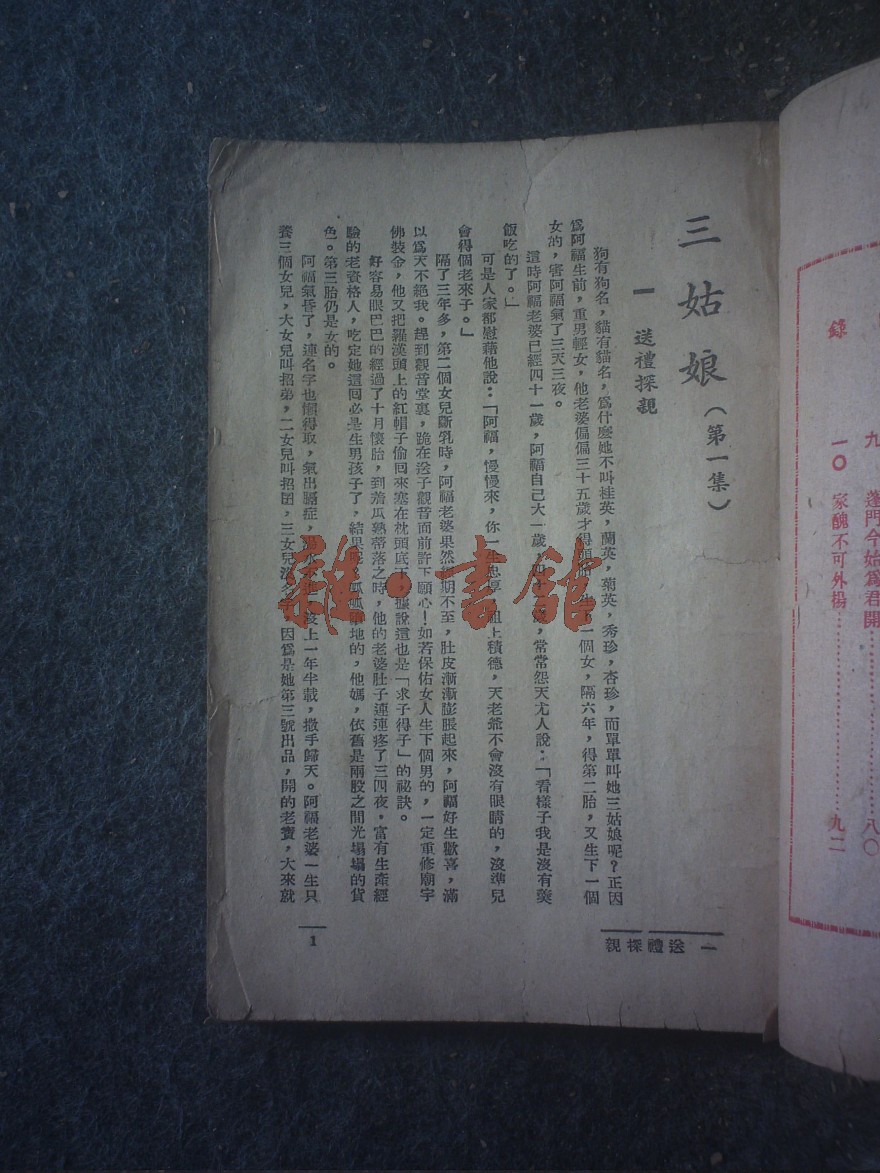 九 蓬門今始爲君開……八〇
錄
一〇 家醜不可外揚……九二
三姑娘（第一集）
一 送禮探親
狗有狗名，貓有貓名，爲什麼她不叫桂英，蘭英，菊英，秀珍，杏珍，而單單叫她三姑娘呢？正因
爲阿福生前，重男輕女，他老婆偏偏三十五歲才得頭胎，一個女，隔六年，得第二胎，又生下一個
女的，害阿福氣了三天三夜。
這時阿福老婆已經四十一歲，阿福自己大一歲，歲，常常怨天尤人說：「看樣子我是沒有羹
飯吃的了。」
可是人家都慰藉他說：「阿福，慢慢來，你一生忠厚，祖上積德，天老爺不會沒有眼睛的，沒準兒
會得個老來子。」
隔了三年多，第二個女兒斷乳時，阿福老婆果然期不至，肚皮漸漸膨脹起來，阿福好生歡喜，滿
以爲天不絕我。趕到觀音堂裏，跪在送子觀音面前許下願心！如若保佑女人生下個男的，一定重修廟宇
佛裝金，他又把羅漢頭上的紅帽子偷回來塞在枕頭底下，據說這也是「求子得子」的祕訣。
好容易眼巴巴的經過了十月懷胎，到膏瓜熟蒂落之時，他的老婆肚子連連疼了三四夜，富有生產經
驗的老資格人，吃定她這囘必是生男孩子了，結果呱呱墜地的，他媽，依舊是兩股之間光塌塌的貨
色。第三胎仍是女的。
阿福氣昏了，連名字也懶得取，氣出膈症，上一年半載，撒手歸天。阿福老婆一生只
養三個女兒，大女兒叫招弟，二女兒叫招囝，三女兒沒名字，因爲是她第三號出品，開的老賣，大來就
一 送禮探親
1
雜·書館